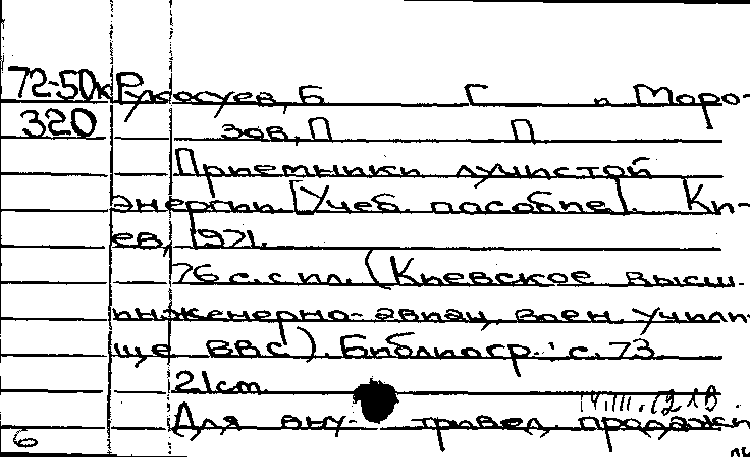 72-50к Рукосуев, Б Г и Моро-
320 зов, П П
Приемники лучистой
энергии [Учеб. пособие]. Ки-
ев, 1971.
76 с. с ил. (Киевское высш.
инженерно-авиац. воен. учили-
ще ВВС). Библиогр.: с. 73.
21 cm.
Для вну- тривед. продажи
6